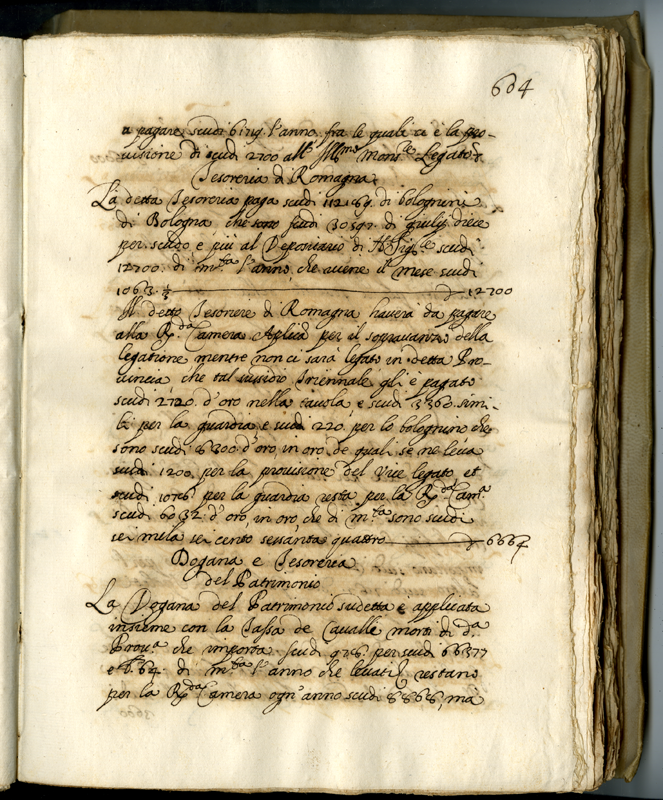 604
a pagare scudi 6179. l'anno fra le quali ci è la pro-
uisione di scudi 2700 all' Ill.mo Mons.re Legato.
Tesoreria di Romagna.
La detta Tesoreria paga scudi di bolognini
di Bologna, che sono scudi di giulij diece
per scudo e più al Depositario di scudi
12700. di m.ta l'anno, che uiene il mese scudi
1063. 1/3 12700
Il detto Tesoriere di Romagna hauerà da pagare
alla R.da Camera Aplica per il soprauanzo della
legatione mentre non ci sarà legato in detta Pro-
uincia che tal sussidio Triennale gli è pagato
scudi 2720. d'oro nella tauola, e scudi 3360. simi-
li per la guardia e scudi 220. per lo bolognino che
sono scudi 6300 d'oro in oro de quali se ne leua
scudi 1200 per la prouisione del Vice legato et
scudi per la guardia resta per la R.da Cam.a
scudi 6032. d'oro in oro che di m.ta sono scudi
sei mila sei cento sessanta quattro 6664
Dogana e Tesoreria
del Patrimonio
La Dogana del Patrimonio sudetta è applicata
insieme con la Tassa de Caualle morti di d.a
Prou.a che importa scudi per scudi 66377
e b. 64. di m.ta l'anno che leuati restano
per la R.da Camera ogn'anno scudi ma